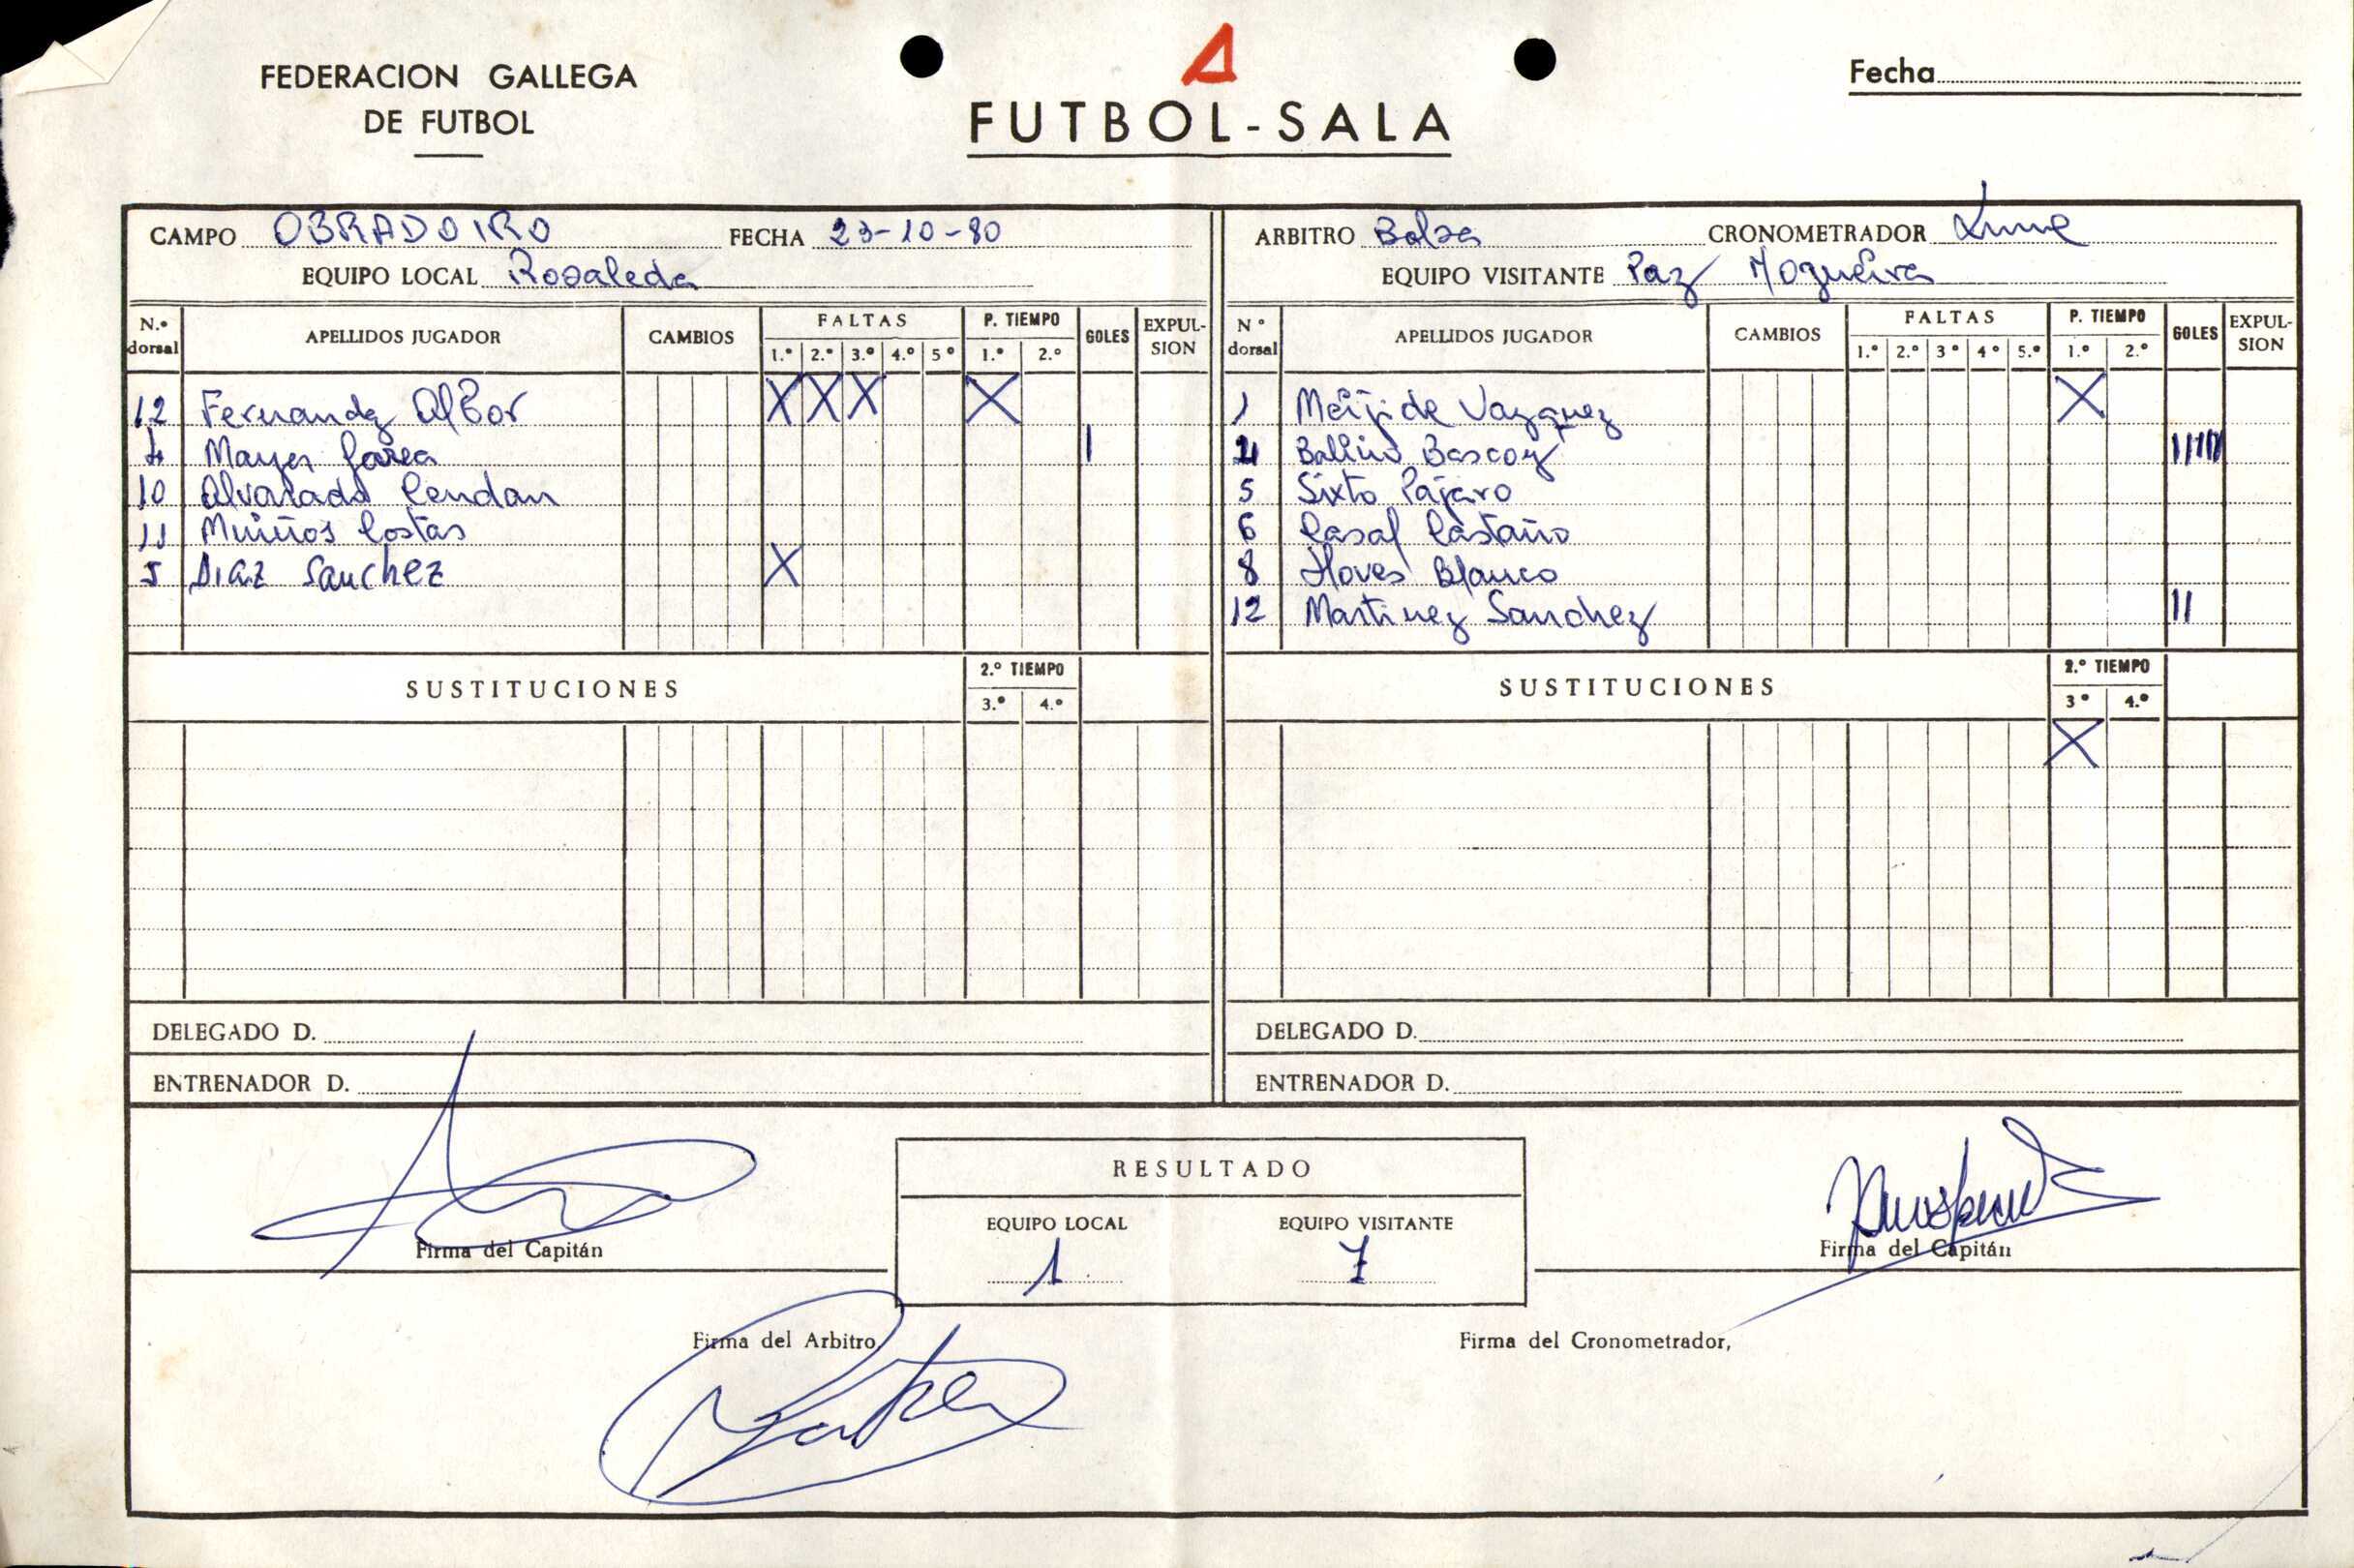 Δ
FEDERACION GALLEGA
DE FUTBOL
FUTBOL-SALA
Fecha
CAMPO OBRADOIRO FECHA 23-10-80
EQUIPO LOCAL Rosaleda
N.º dorsal APELLIDOS JUGADOR CAMBIOS FALTAS 1.º 2.º 3.º 4.º 5º P. TIEMPO 1.º 2.º GOLES EXPULSION
12 Fernandz Albor X X X X
4 Mayer I
10 Alvarado Cendan
11 Muiños Costas
5 Diaz Sanchez X
SUSTITUCIONES 2.º TIEMPO 3.º 4.º
DELEGADO D.
ENTRENADOR D.
ARBITRO Bolsa CRONOMETRADOR
EQUIPO VISITANTE Paz Nogueira
N º dorsal APELLIDOS JUGADOR CAMBIOS FALTAS 1.º 2.º 3º 4º 5.º P. TIEMPO 1.º 2.º GOLES EXPULSION
1 Meijide Vazquez X
Bascoy IIIII
5 Sixto Pájaro
6 Casal Castaño
8 Blanco
12 Martinez Sanchez II
SUSTITUCIONES 2.º TIEMPO 3º 4.º
X
DELEGADO D.
ENTRENADOR D.
RESULTADO
EQUIPO LOCAL EQUIPO VISITANTE
1 7
Firma del Capitán
Firma del Capitán
Firma del Arbitro,
Firma del Cronometrador,